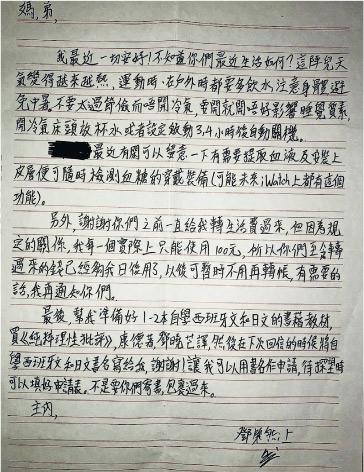 媽,弟,
我最近一切安好!不知道你們最近生活如何?這陣兒天
氣變得越來越熱,運動時、在戶外時都要多飲水,注意身體避
免中暑,不要太過節儉而唔開冷氣,要開就開唔好影響睡覺質素,
開冷氣床頭放杯水或者設定啟動3,4小時後自動關機。
最近有關可以留意一下有需要提取血液及安裝上
皮層便可隨時檢測血糖的穿戴裝備(可能未來iWatch上都有這個
功能)。
另外,謝謝你們之前一直給我轉生活費過來,但因為規
定的關係,我每一個實際上只能使用100元,所以你們至今轉
過來的錢已經夠我日後用了,以後可暫時不用再轉帳,有需要的
話,我再通知你們。
最後,幫我準備好1-2本自學西班牙文和日文的書籍教材,
買《純粹理性批評》,康德著,鄧曉芒譯,然後在下次回信的時候將自
學西班牙文和日文書名寫給我,謝謝!讓我可以用書名作申請,待探望時
可以填好申請表。不是要你們寄書,包裹過來。
主內,
鄧棨然上